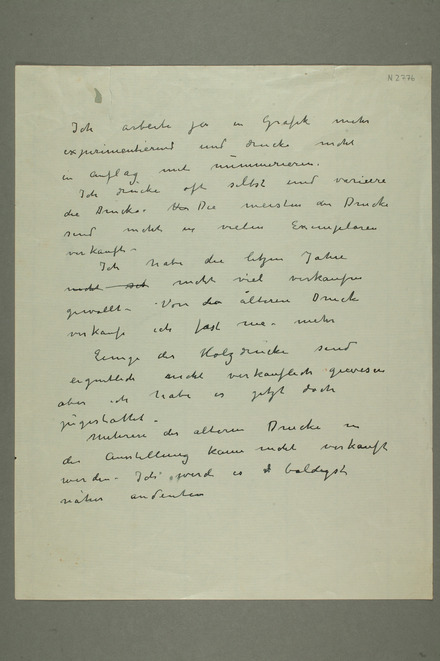 N 2776
Ich arbeite ja in Grafik mehr
experimentierend und drucke nicht
in auflag und nümmerieren.
Ich drücke oft selbst und variiere
die Drucke. Die meisten der Drucke
sind nicht in vielen Exemplaren
verkauft.
Ich habe die letzen Jahre
nicht viel verkaufen
gewollt. Von den älteren Druck
verkaufe ich fast nie mehr
Einige der Holzdrücke sind
eigentlich nicht verkäuflich gewesen
aber ich habe es jetzt doch
zugestattet.
Mehrere der älteren Drucke in
der Ausstellung kann nicht verkauft
werden. Ich werde es baldigst
näher andeuten